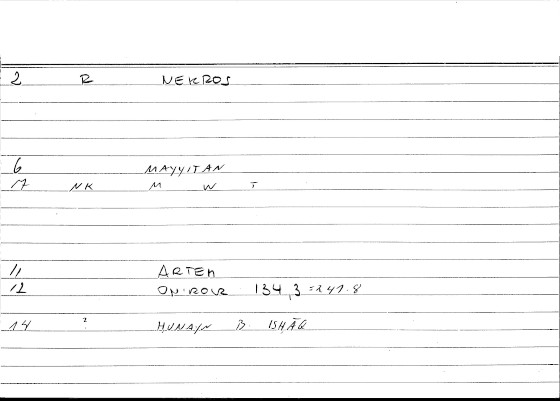 2 R NEKROS
6 MAYYITAN
17 NK M W T
11 ARTEM
12 134,3 =
14 ? HUNAYN B ISHĀQ